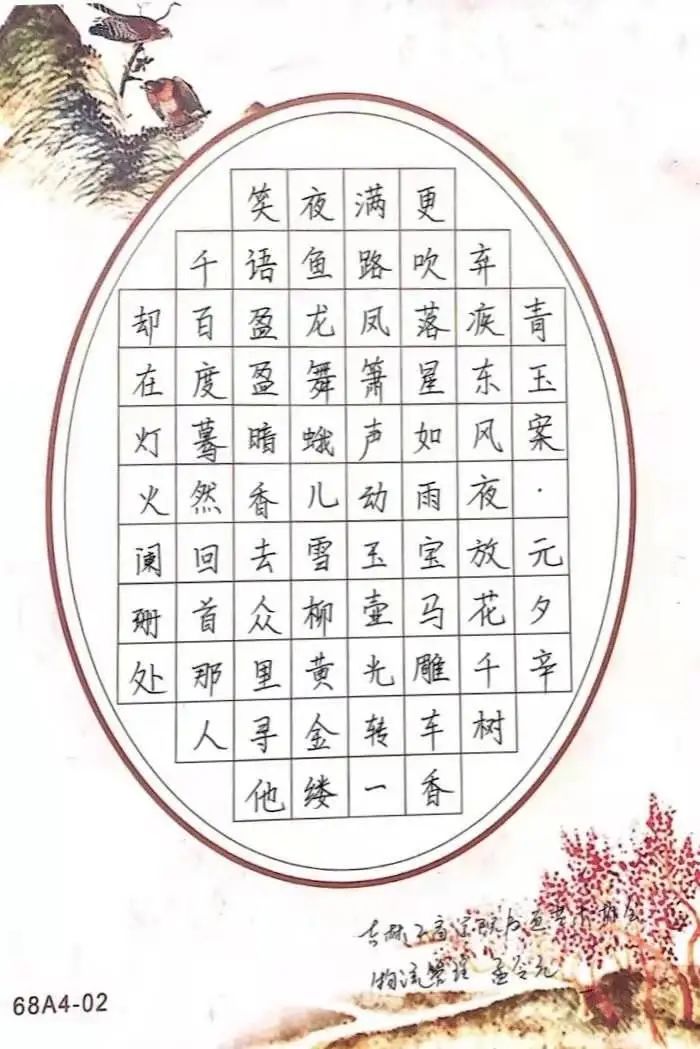 青玉案·元夕辛
弃疾东风夜放花千树
更吹落星如雨宝马雕车香
满路凤箫声动玉壶光转一
夜鱼龙舞蛾儿雪柳黄金缕
笑语盈盈暗香去众里寻他
千百度蓦然回首那人
却在灯火阑珊处
吉林工商学院书画艺术协会
物流管理 孟令元
68A4-02